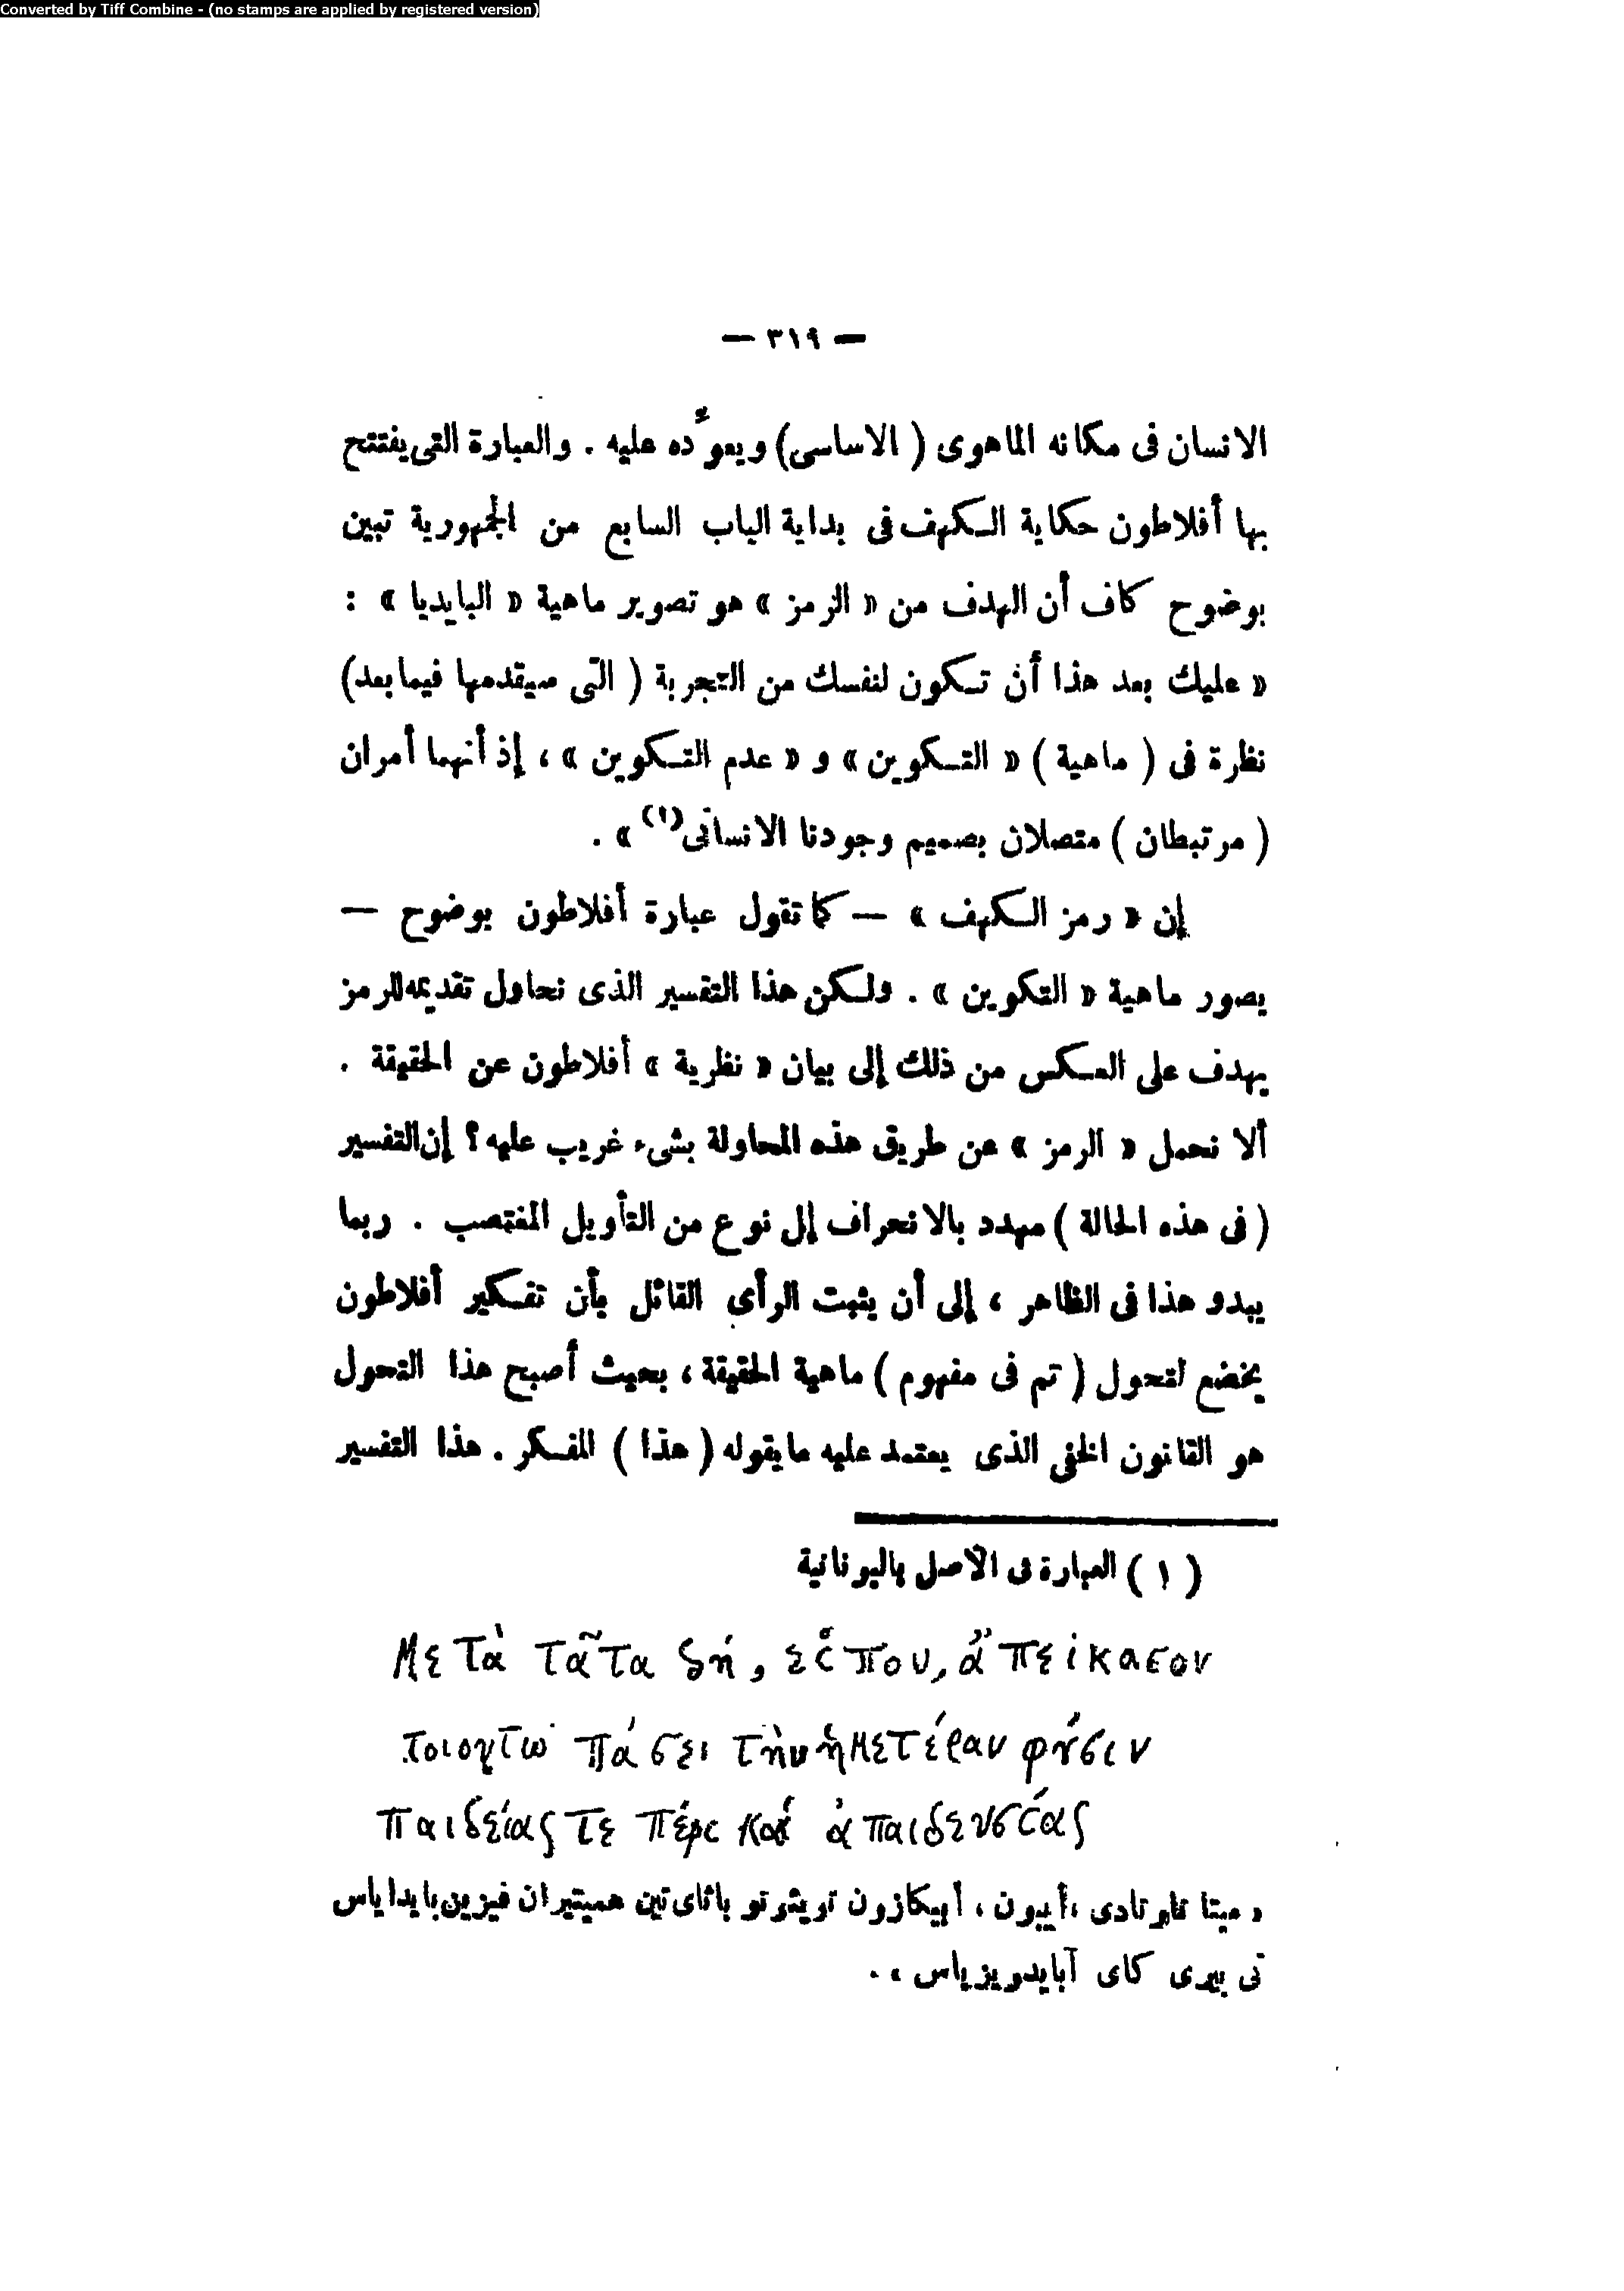 Converted by Tiff Combine - (no stamps are applied by registered version)
— ٣١٩ —
الانسان فى مكانه الماهوى ( الاساسى) ويعوّده عليه . والعبارة التى يفتتح
بها أفلاطون حكاية الكهف فى بداية الباب السابع من الجمهورية تبين
بوضوح كاف أن الهدف من « الرمز » هو تصوير ماهية « البايديا » :
« عليك بعد هذا أن تكون لنفسك من التجربة ( التى سيقدمها فيما بعد)
نظرة فى ( ماهية ) « التكوين » و « عدم التكوين » ، إذ أنهما أمران
( مرتبطان ) متصلان بصميم وجودنا الانسانى(١) » .
إن « رمز الكهف » — كما تقول عبارة أفلاطون بوضوح —
يصور ماهية « التكوين » . ولكن هذا التفسير الذى نحاول تقديمه للرمز
يهدف على العكس من ذلك إلى بيان « نظرية » أفلاطون عن الحقيقة .
ألا نحمل « الرمز » عن طريق هذه المحاولة بشىء غريب عليه ؟ إن التفسير
( فى هذه الحالة ) مهدد بالانحراف إلى نوع من التأويل المغتصب . ربما
يبدو هذا فى الظاهر ، إلى أن يثبت الرأى القائل بأن تفكير أفلاطون
يخضع لتحول ( تم فى مفهوم ) ماهية الحقيقة ، بحيث أصبح هذا التحول
هو القانون الخفى الذى يعتمد عليه ما يقوله ( هذا ) المفكر . هذا التفسير
( ١ ) العبارة فى الأصل باليونانية
Μετὰ ταῦτα δή, εἶπου, ἀπείκασον
τοιούτω πάθει τὴν ἡμετέραν φύσιν
παιδείας τε πέρι καὶ ἀπαιδευσίας
« ميتا تاوتادى ، أيبون ، أبيكازون تويئوتو باثاى تين هميتيران فيزين بايداياس
تى بيرى كاى آبايدويزياس » .